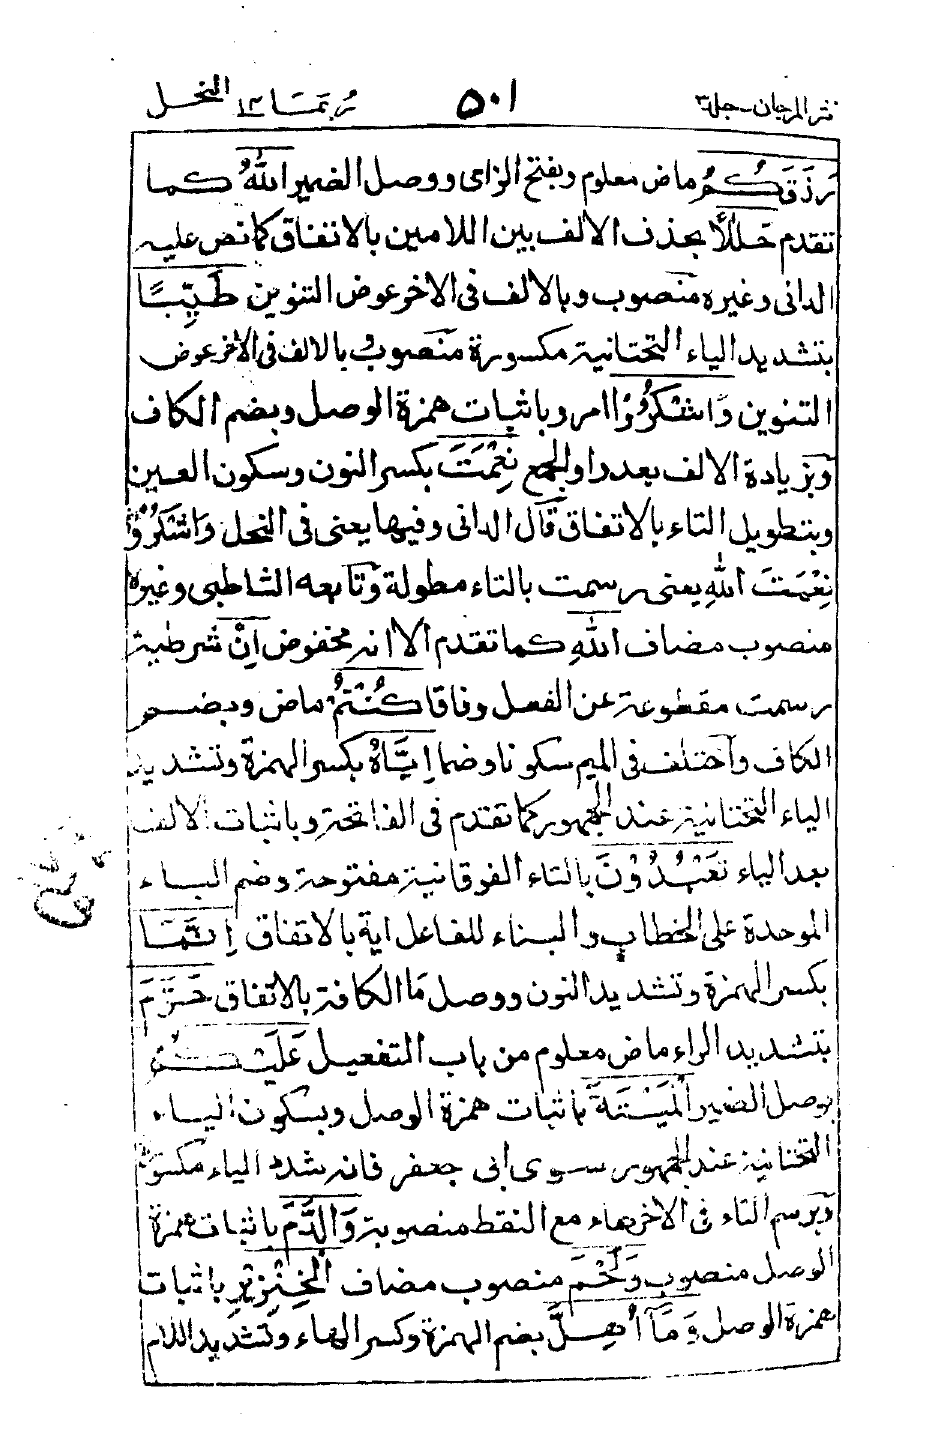 نثر المرجان - جلد ٣ ٥٠١ ربما ١٤ النحل
رَزَقَكُمُ ماض معلوم وبفتح الزای ووصل الضمير اللهُ كما
تقدم حَلٰلًا بحذف الالف بين اللامين بالاتفاق كما نص عليه
الدانی وغيره منصوب وبالالف فی الاخر عوض التنوين طَيِّبًا
بتشديد الياء التحتانية مكسورة منصوب بالالف فی الاخر عوض
التنوين وَاشْكُرُوْا امر وباثبات همزة الوصل وبضم الكاف
وبزيادة الالف بعد واو الجمع نِعْمَتَ بكسر النون وسكون العين
وبتطويل التاء بالاتفاق قال الدانی وفيها يعنی فی النحل وَاشْكُرُوْا
نِعْمَتَ اللهِ يعنی رسمت بالتاء مطولة وتابعه الشاطبی وغيره
منصوب مضاف اللهِ كما تقدم الا انه مخفوض اِنْ شرطية
رسمت مقطوعة عن الفعل وفاقا كُنْتُمْ ماض وبضم
الكاف واختلف فی الميم سكونا وضما اِيَّاهُ بكسر الهمزة وتشديد
الياء التحتانية عند الجمهور كما تقدم فی الفاتحة وباثبات الالف
بعد الياء تَعْبُدُوْنَ بالتاء الفوقانية مفتوحة وضم الباء
الموحدة علی الخطاب والبناء للفاعل اية بالاتفاق اِنَّمَا
بكسر الهمزة وتشديد النون ووصل ما الكافة بالاتفاق حَرَّمَ
بتشديد الراء ماض معلوم من باب التفعيل عَلَيْكُمُ
بوصل الضمير الْمَيْتَةَ باثبات همزة الوصل وبسكون الياء
التحتانية عند الجمهور سوی ابی جعفر فانه شدد الياء مكسورة
وبرسم التاء فی الاخر هاء مع النقط منصوبة وَالدَّمَ باثبات همزة
الوصل منصوب وَلَحْمَ منصوب مضاف الْخِنْزِيْرِ باثبات
همزة الوصل وَمَآ اُهِلَّ بضم الهمزة وكسر الهاء وتشديد اللام